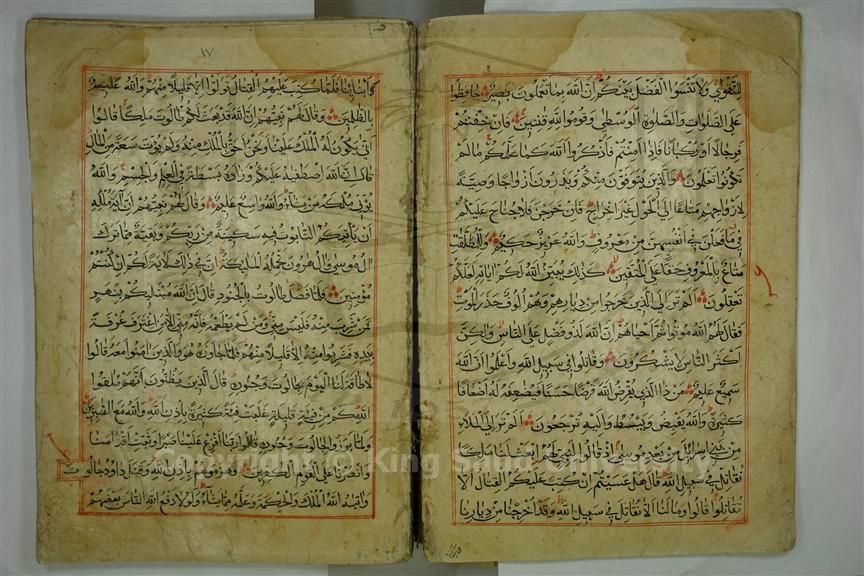 للتقوى ولا تنسوا الفضل بينكم ان الله بما تعملون بصير حافظوا
على الصلوات والصلوة الوسطى وقوموا لله قنتين فان خفتم
فرجالا او ركبانا فاذا امنتم فاذكروا الله كما علمكم ما لم
تكونوا تعلمون والذين يتوفون منكم ويذرون ازواجا وصية
لازواجهم متاعا الى الحول غير اخراج فان خرجن فلا جناح عليكم
في ما فعلن في انفسهن من معروف والله عزيز حكيم وللمطلقت
متاع بالمعروف حقا على المتقين كذلك يبين الله لكم اياته لعلكم
تعقلون الم تر الى الذين خرجوا من ديارهم وهم الوف حذر الموت
فقال لهم الله موتوا ثم احياهم ان الله لذو فضل على الناس ولكن
اكثر الناس لا يشكرون وقاتلوا في سبيل الله واعلموا ان الله
سميع عليم من ذا الذي يقرض الله قرضا حسنا فيضعفه له اضعافا
كثيرة والله يقبض ويبسط واليه ترجعون الم تر الى الملا
من بني اسرائل من بعد موسى اذ قالوا لنبي لهم ابعث لنا ملكا
نقاتل في سبيل الله قال هل عسيتم ان كتب عليكم القتال الا
تقاتلوا قالوا وما لنا الا نقاتل في سبيل الله وقد اخرجنا من ديارنا
١٧
وابنائنا فلما كتب عليهم القتال تولوا الا قليلا منهم والله عليم
بالظلمين وقال لهم نبيهم ان الله قد بعث لكم طالوت ملكا قالوا
انى يكون له الملك علينا ونحن احق بالملك منه ولم يؤت سعة من المال
قال ان الله اصطفيه عليكم وزاده بسطة في العلم والجسم والله
يؤتي ملكه من يشاء والله واسع عليم وقال لهم نبيهم ان اية ملكه
ان ياتيكم التابوت فيه سكينة من ربكم وبقية مما ترك
ال موسى وال هرون تحمله المليكة ان في ذلك لاية لكم ان كنتم
مؤمنين فلما فصل طالوت بالجنود قال ان الله مبتليكم بنهر
فمن شرب منه فليس مني ومن لم يطعمه فانه مني الا من اغترف غرفة
بيده فشربوا منه الا قليلا منهم فلما جاوزه هو والذين امنوا معه قالوا
لا طاقة لنا اليوم بجالوت وجنوده قال الذين يظنون انهم ملقوا
الله كم من فئة قليلة غلبت فئة كثيرة باذن الله والله مع الصبرين
ولما برزوا لجالوت وجنوده قالوا ربنا افرغ علينا صبرا وثبت اقدامنا
وانصرنا على القوم الكفرين فهزموهم باذن الله وقتل داود جالوت
واتيه الله الملك والحكمة وعلمه مما يشاء ولولا دفع الله الناس بعضهم
Copyright © King Saud University